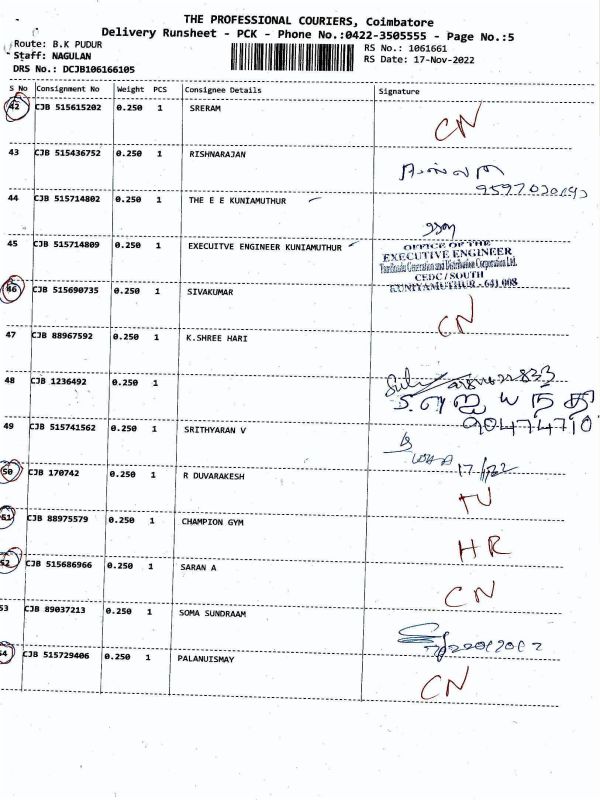 THE PROFESSIONAL COURIERS, Coimbatore
Delivery Runsheet - PCK - Phone No.:0422-3505555 - Page No.:5
Route: B.K PUDUR
RS No.: 1061661
Staff: NAGULAN
RS Date: 17-Nov-2022
DRS No.: DCJB106166105
S No Consignment No Weight PCS Consignee Details Signature
42 CJB 515615202 0.250 1 SRERAM CN
43 CJB 515436752 0.250 1 RISHNARAJAN
44 CJB 515714802 0.250 1 THE E E KUNIAMUTHUR
45 CJB 515714809 0.250 1 EXECUITVE ENGINEER KUNIAMUTHUR
OFFICE OF THE
EXECUTIVE ENGINEER
Tamilnadu Generation and Distribution Corporation Ltd.
CEDC / SOUTH
KUNIYAMUTHUR - 641 008
46 CJB 515690735 0.250 1 SIVAKUMAR CN
47 CJB 88967592 0.250 1 K.SHREE HARI
48 CJB 1236492 0.250 1
49 CJB 515741562 0.250 1 SRITHYARAN V
50 CJB 170742 0.250 1 R DUVARAKESH TU
51 CJB 88975579 0.250 1 CHAMPION GYM HR
52 CJB 515686966 0.250 1 SARAN A CN
53 CJB 89037213 0.250 1 SOMA SUNDRAAM
54 CJB 515729406 0.250 1 PALANUISMAY CN